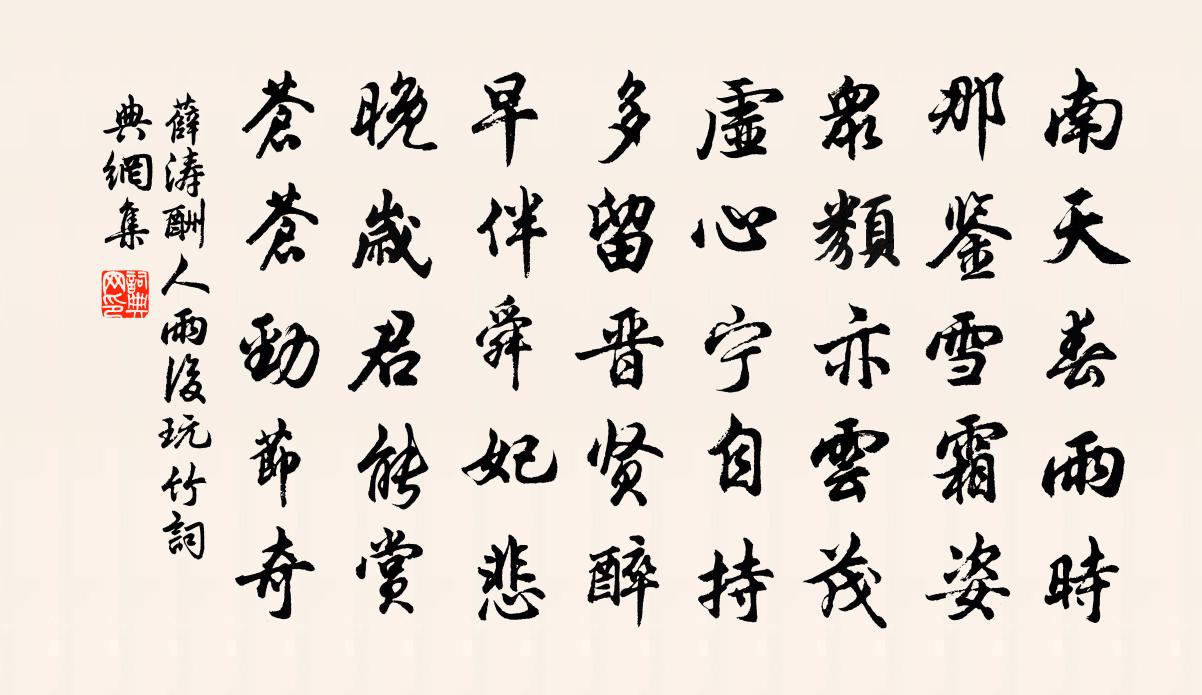 南天春雨時
那鉴雪霜姿
衆類亦雲茂
虛心宁自持
多留晋贤醉
早伴舜妃悲
晚歲君能賞
蒼蒼勁節奇
薛涛酬人雨後玩竹詞
典網集
詞典網印